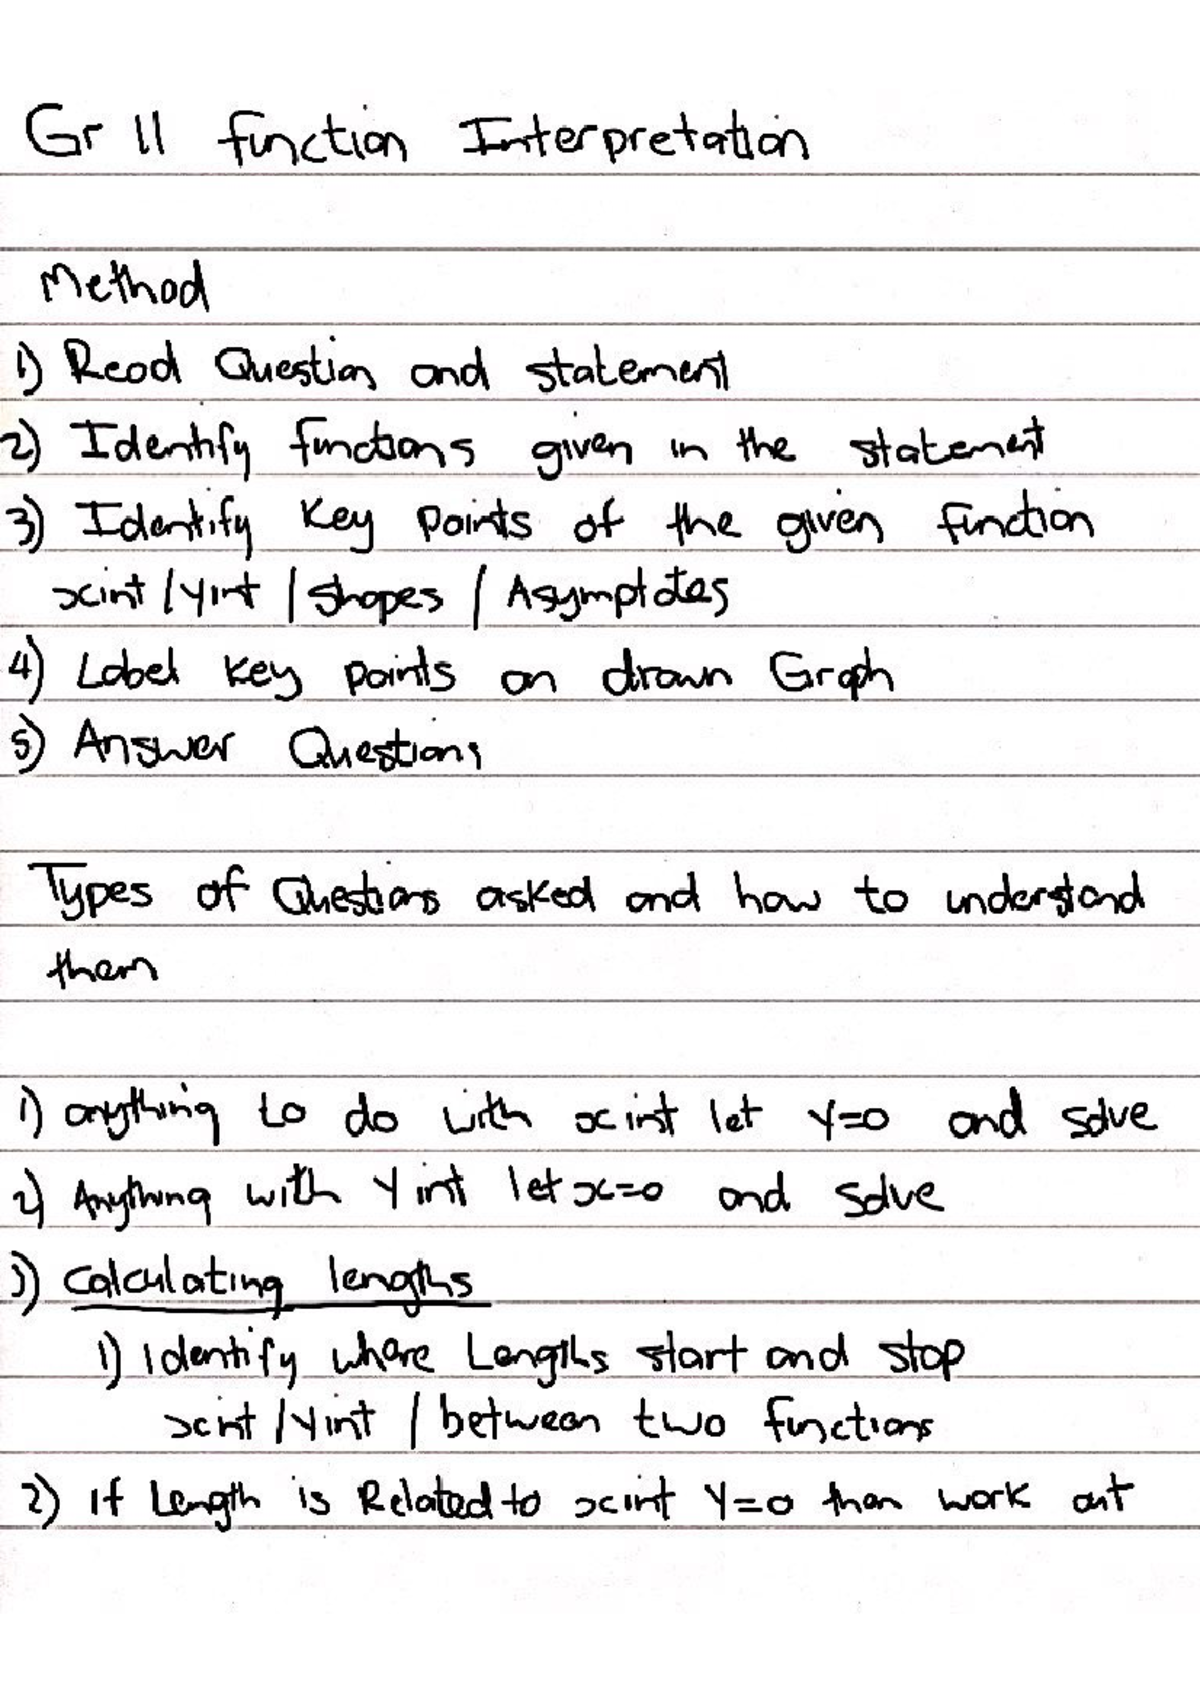 Gr 11 function Interpretation
Method
1) Read Question and statement
2) Identify functions given in the statement
3) Identify Key Points of the given function
xint / Yint / shapes / Asymptotes
4) Label Key points on drawn Graph
5) Answer Questions
Types of Questions asked and how to understand
them
1) anything to do with xint let Y=0 and solve
2) Anything with Yint let x=0 and solve
3) Calculating lengths
1) Identify where Lengths start and stop
xint / Yint / between two functions
2) If Length is Related to xint Y=0 then work out